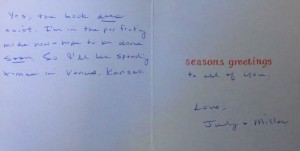 Yes, the book does
exist. I'm in the perfecting
mode now - hope to be done
soon. So I'll be spending
in Venus, Kansas
seasons greetings
to all of you,
Love,
Judy + Milton